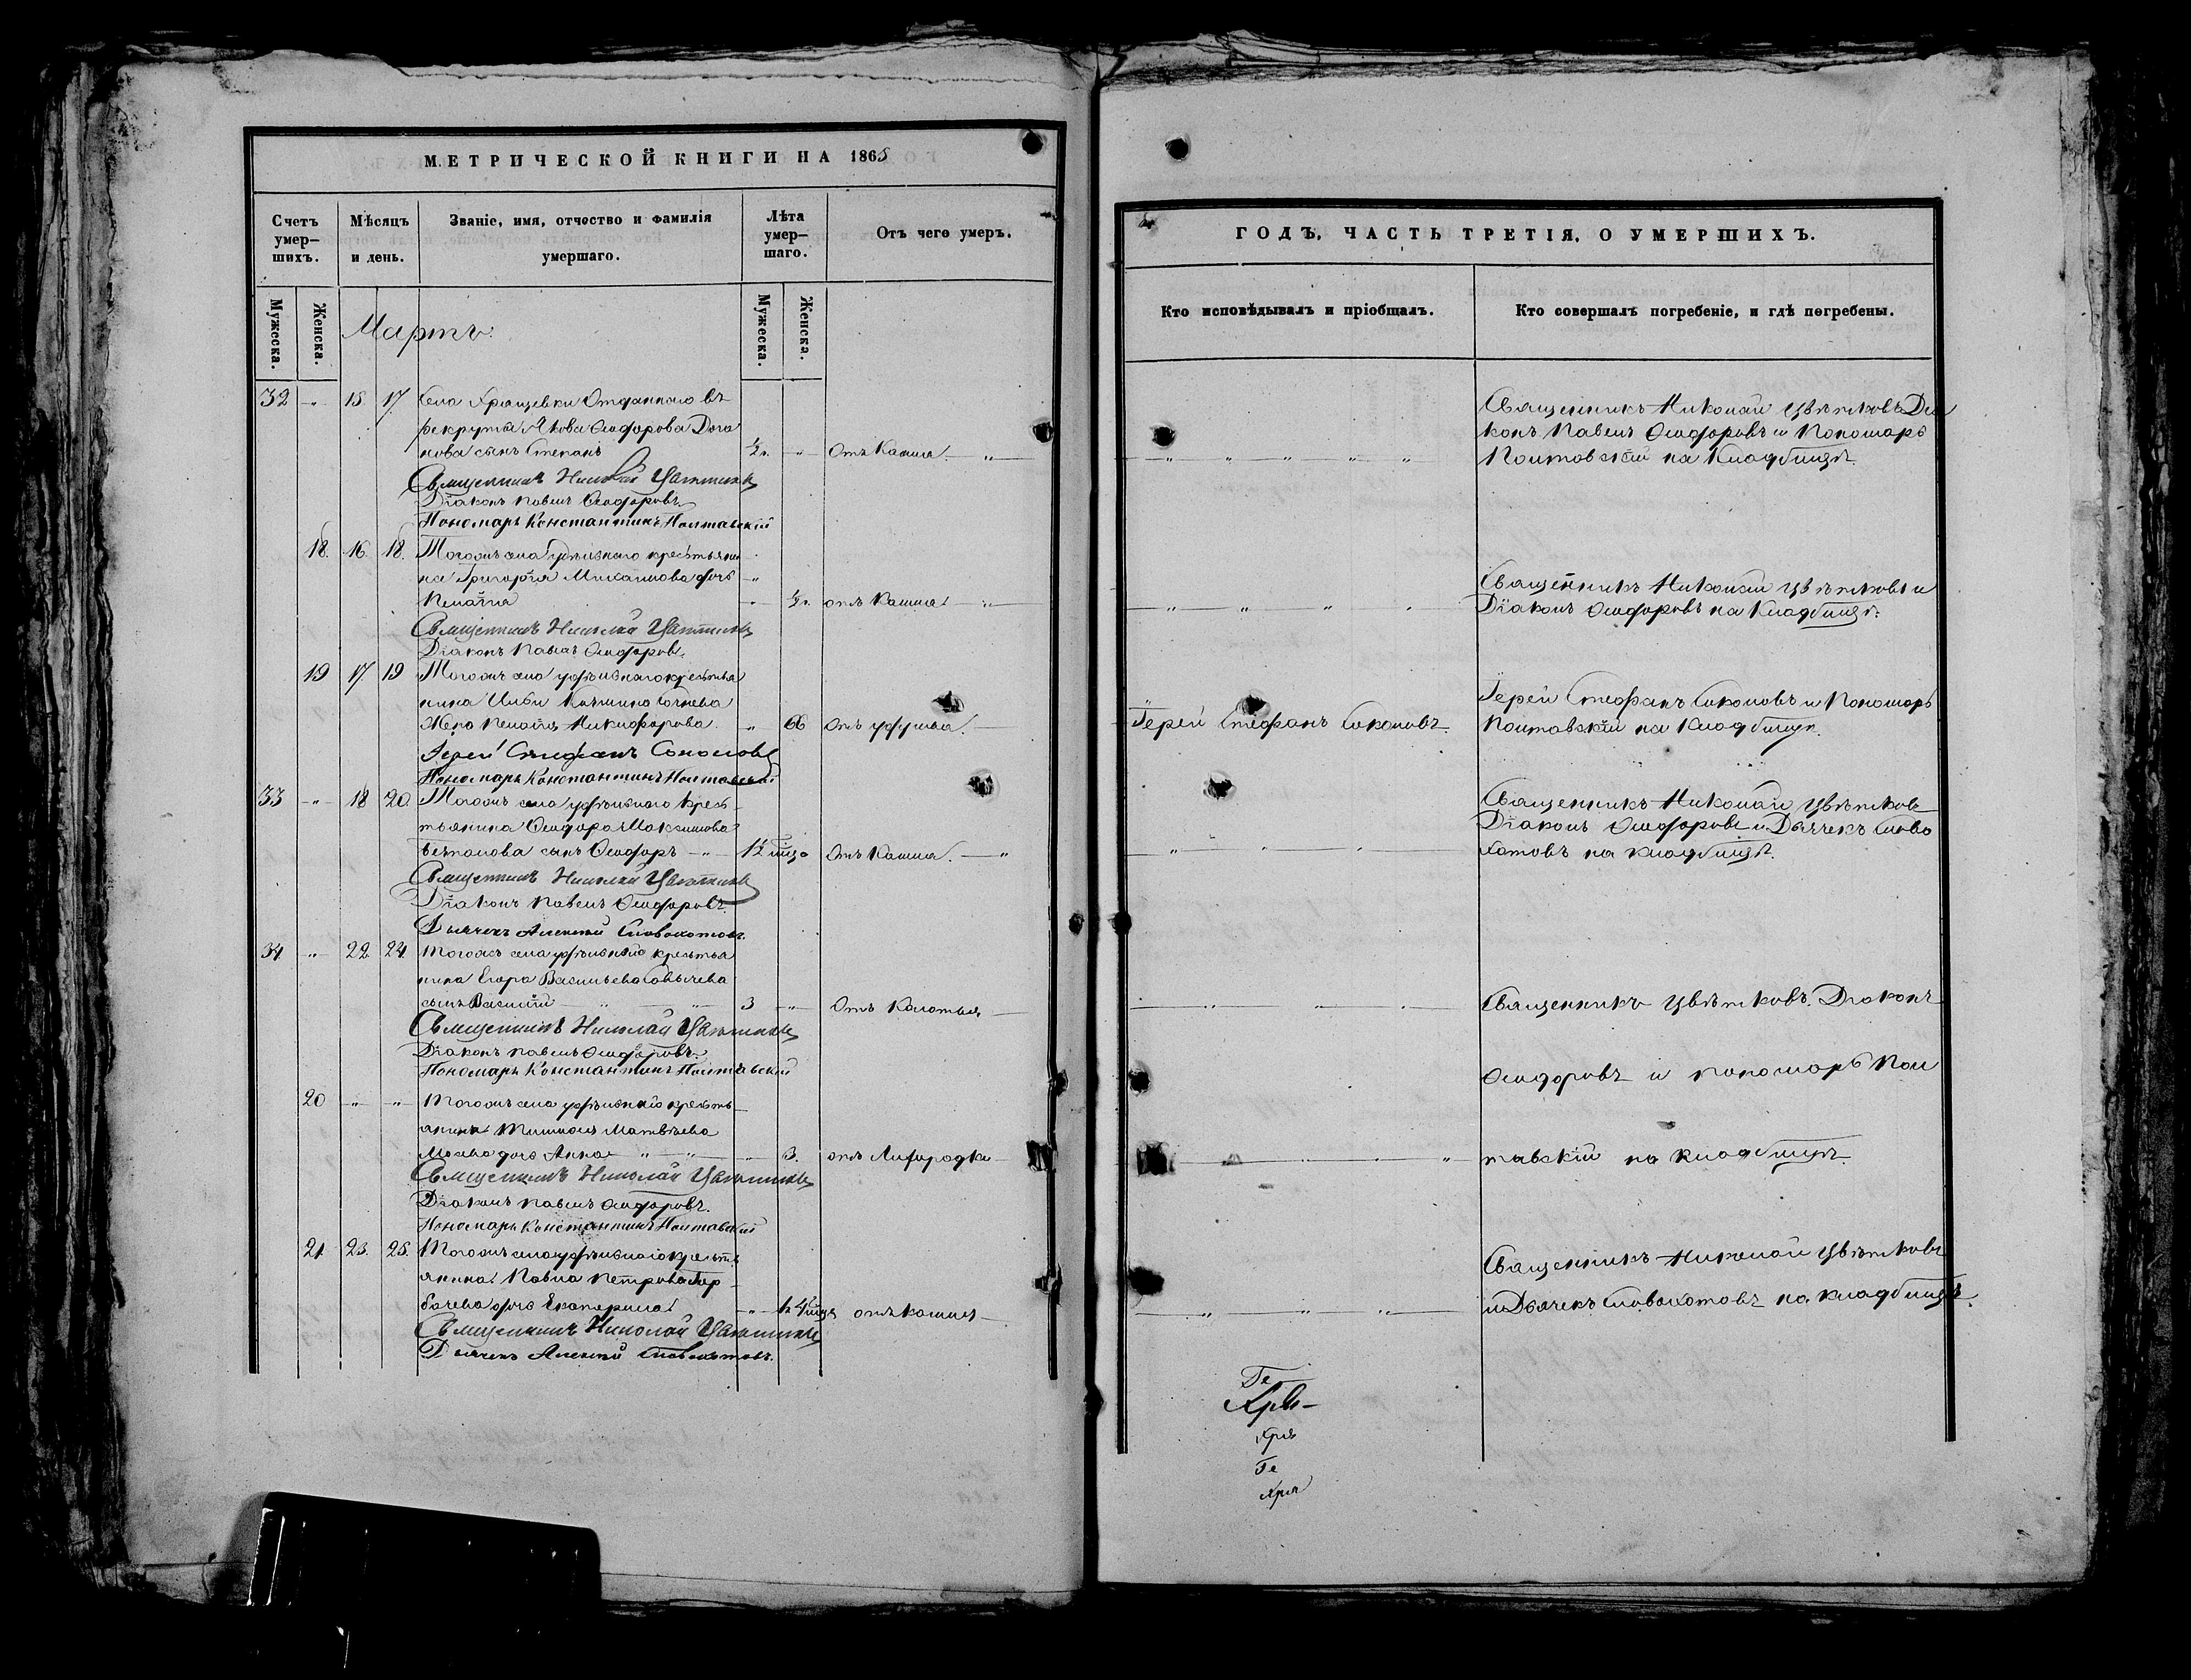 МЕТРИЧЕСКОЙ КНИГИ НА 1865
Счетъ умер-шихъ.
Мѣсяцъ и день.
Званіе, имя, отчество и фамилія умершаго.
Лѣта умер-шаго.
Отъ чего умеръ.
Мужеска.
Женска.
Мужеска.
Женска.
Мартъ.
32 " 15. 17. Села Хрящевки Отданнаго въ
рекруты Якова Ѳеодорова Дога
нова сынъ Степанъ ½ г. " Отъ Кашля. "
Священникъ Николай Цвѣтковъ
Діаконъ Павелъ Ѳеодоровъ
Пономарь Константинъ Полтавскій
18. 16. 18. Тогожъ села удѣльнаго крестьяни
на Григорія дочь "
Пелагія " ½ г. отъ Кашля "
Священникъ Николай Цвѣтковъ
Діаконъ Павелъ Ѳеодоровъ.
19 17. 19 Тогожъ села удѣльнаго крестья
нина Ильи
Жена Пелагія Никифорова " 66 отъ удушья.
Іерей Стефанъ Соколовъ
Пономарь Константинъ Полтавскій
33 " 18 20. Тогожъ села удѣльнаго Кресть
тьянина Ѳеодора Максимова
сынъ Ѳеодоръ " 1½ мѣс. Отъ Кашля. "
Священникъ Николай Цвѣтковъ
Діаконъ Павелъ Ѳеодоровъ.
Дьячекъ Алексѣй Словохотовъ.
34 " 22. 24. Тогожъ села удѣльнаго крестья
нина Егора Васильева
сынъ Василій " " 3 " Отъ Колотья
Священникъ Николай Цвѣтковъ
Діаконъ Павелъ Ѳеодоровъ.
Пономарь Константинъ Полтавскій
20 " " Тогожъ села удѣльнаго кресть
янина Матвѣева
дочь Анна " " " 3. отъ Лихорадки
Священникъ Николай Цвѣтковъ
Діаконъ Павелъ Ѳеодоровъ.
Пономарь Константинъ Полтавскій
21 23. 25. Тогожъ села удѣльнаго кресть
янина Павла Петрова Гор
бачева дочь Екатерина " отъ кашля
Священникъ Николай Цвѣтковъ
Дьячекъ Алексѣй Словохотовъ.
ГОДЪ, ЧАСТЬ ТРЕТІЯ, О УМЕРШИХЪ.
Кто исповѣдывалъ и пріобщалъ.
Кто совершалъ погребеніе, и гдѣ погребены.
Священникъ Николай Цвѣтковъ Діа
конъ Павелъ Ѳеодоровъ и Пономарь
" " " " " Полтавскій на Кладбищѣ.
Священникъ Николай Цвѣтковъ и
" " " " Діаконъ Ѳеодоровъ на Кладбищѣ.
Іерей Стефанъ Соколовъ и Пономарь
Іерей Стефанъ Соколовъ. Полтавскій на Кладбищѣ.
Священникъ Николай Цвѣтковъ
Діаконъ Ѳеодоровъ и Дьячекъ Слово
" " " хотовъ на кладбищѣ.
" " " Священникъ Цвѣтковъ. Діаконъ
Ѳеодоровъ и пономарь Пол
" " " тавскій на кладбищѣ.
Священникъ Николай Цвѣтковъ
" " " и Дьячекъ Словохотовъ на кладбищѣ.
Ге
Хря
Хря
Ге
Хря